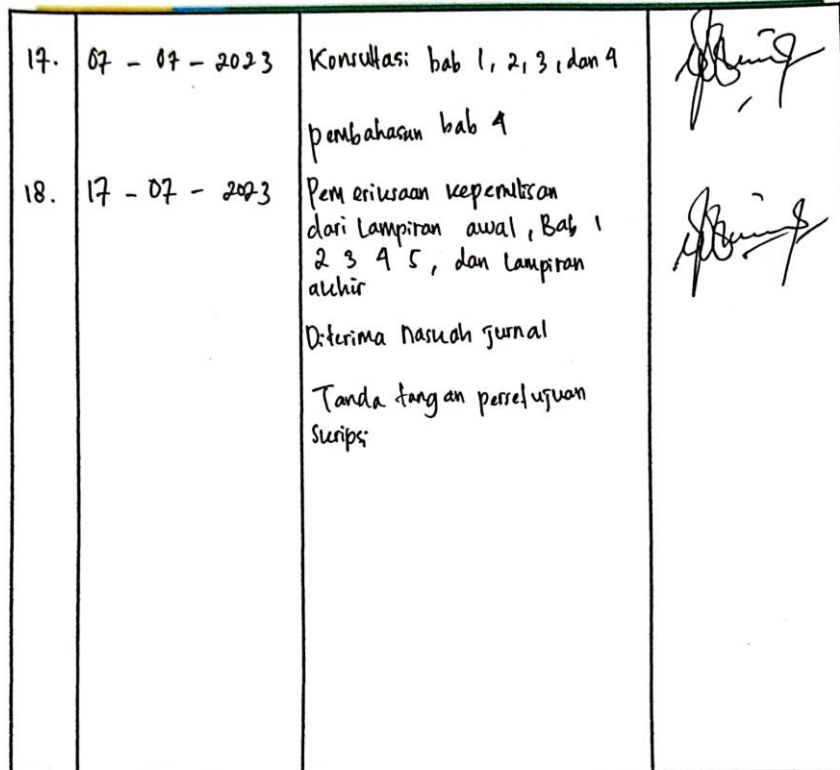 17. 07 - 07 - 2023 Konsultasi bab 1, 2, 3, dan 4
pembahasan bab 4
18. 17 - 07 - 2023 Pemeriksaan kepenulisan
dari Lampiran awal, Bab 1
2 3 4 5, dan Lampiran
akhir
Diterima naskah jurnal
Tanda tangan persetujuan
skripsi